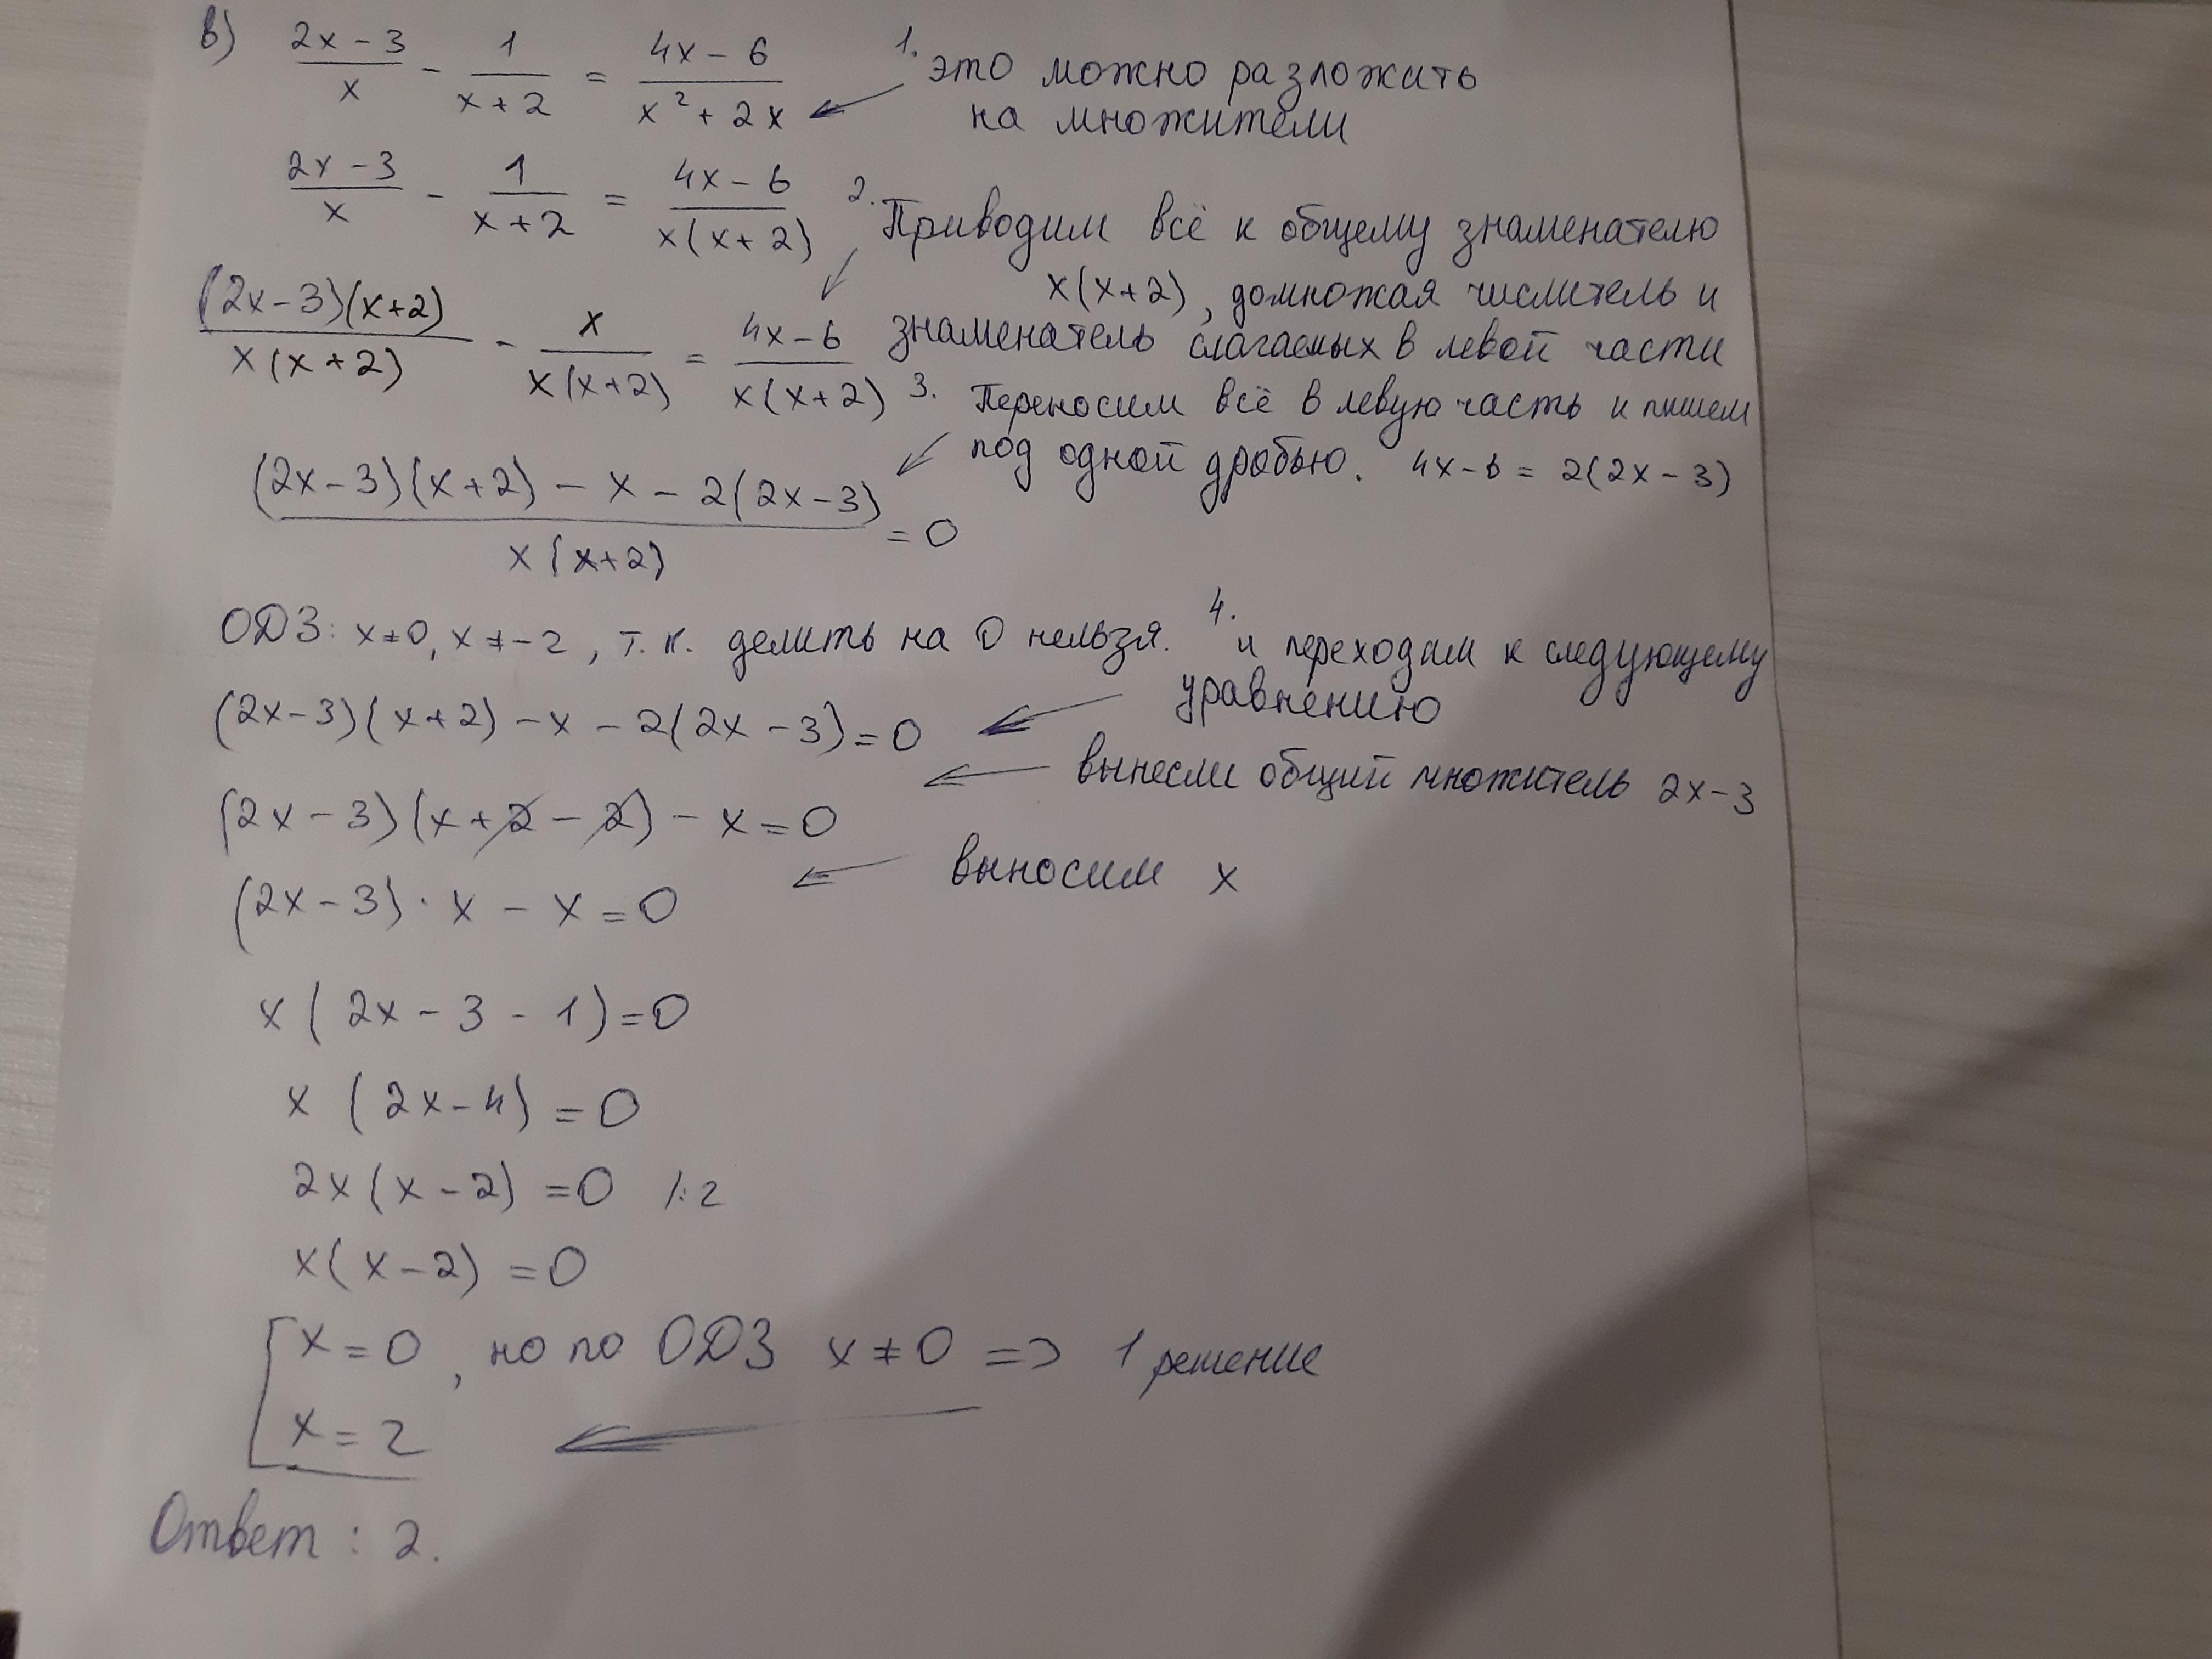 в) (2x-3)/x - 1/(x+2) = (4x-6)/(x²+2x)
1. это можно разложить
на множители
(2x-3)/x - 1/(x+2) = (4x-6)/(x(x+2))
2. Приводим всё к общему знаменателю
x(x+2), домножая числитель и
знаменатель слагаемых в левой части
((2x-3)(x+2))/(x(x+2)) - x/(x(x+2)) = (4x-6)/(x(x+2))
3. Переносим всё в левую часть и пишем
под одной дробью. 4x-6 = 2(2x-3)
((2x-3)(x+2) - x - 2(2x-3))/(x(x+2)) = 0
ОДЗ: x≠0, x≠-2, т.к. делить на 0 нельзя. 4. и переходим к следующему
уравнению
(2x-3)(x+2) - x - 2(2x-3) = 0
вынесли общий множитель 2x-3
(2x-3)(x+2-2) - x = 0
выносим x
(2x-3)·x - x = 0
x(2x-3-1) = 0
x(2x-4) = 0
2x(x-2) = 0 /:2
x(x-2) = 0
[x=0, но по ОДЗ x≠0 => 1 решение
x=2
Ответ: 2.